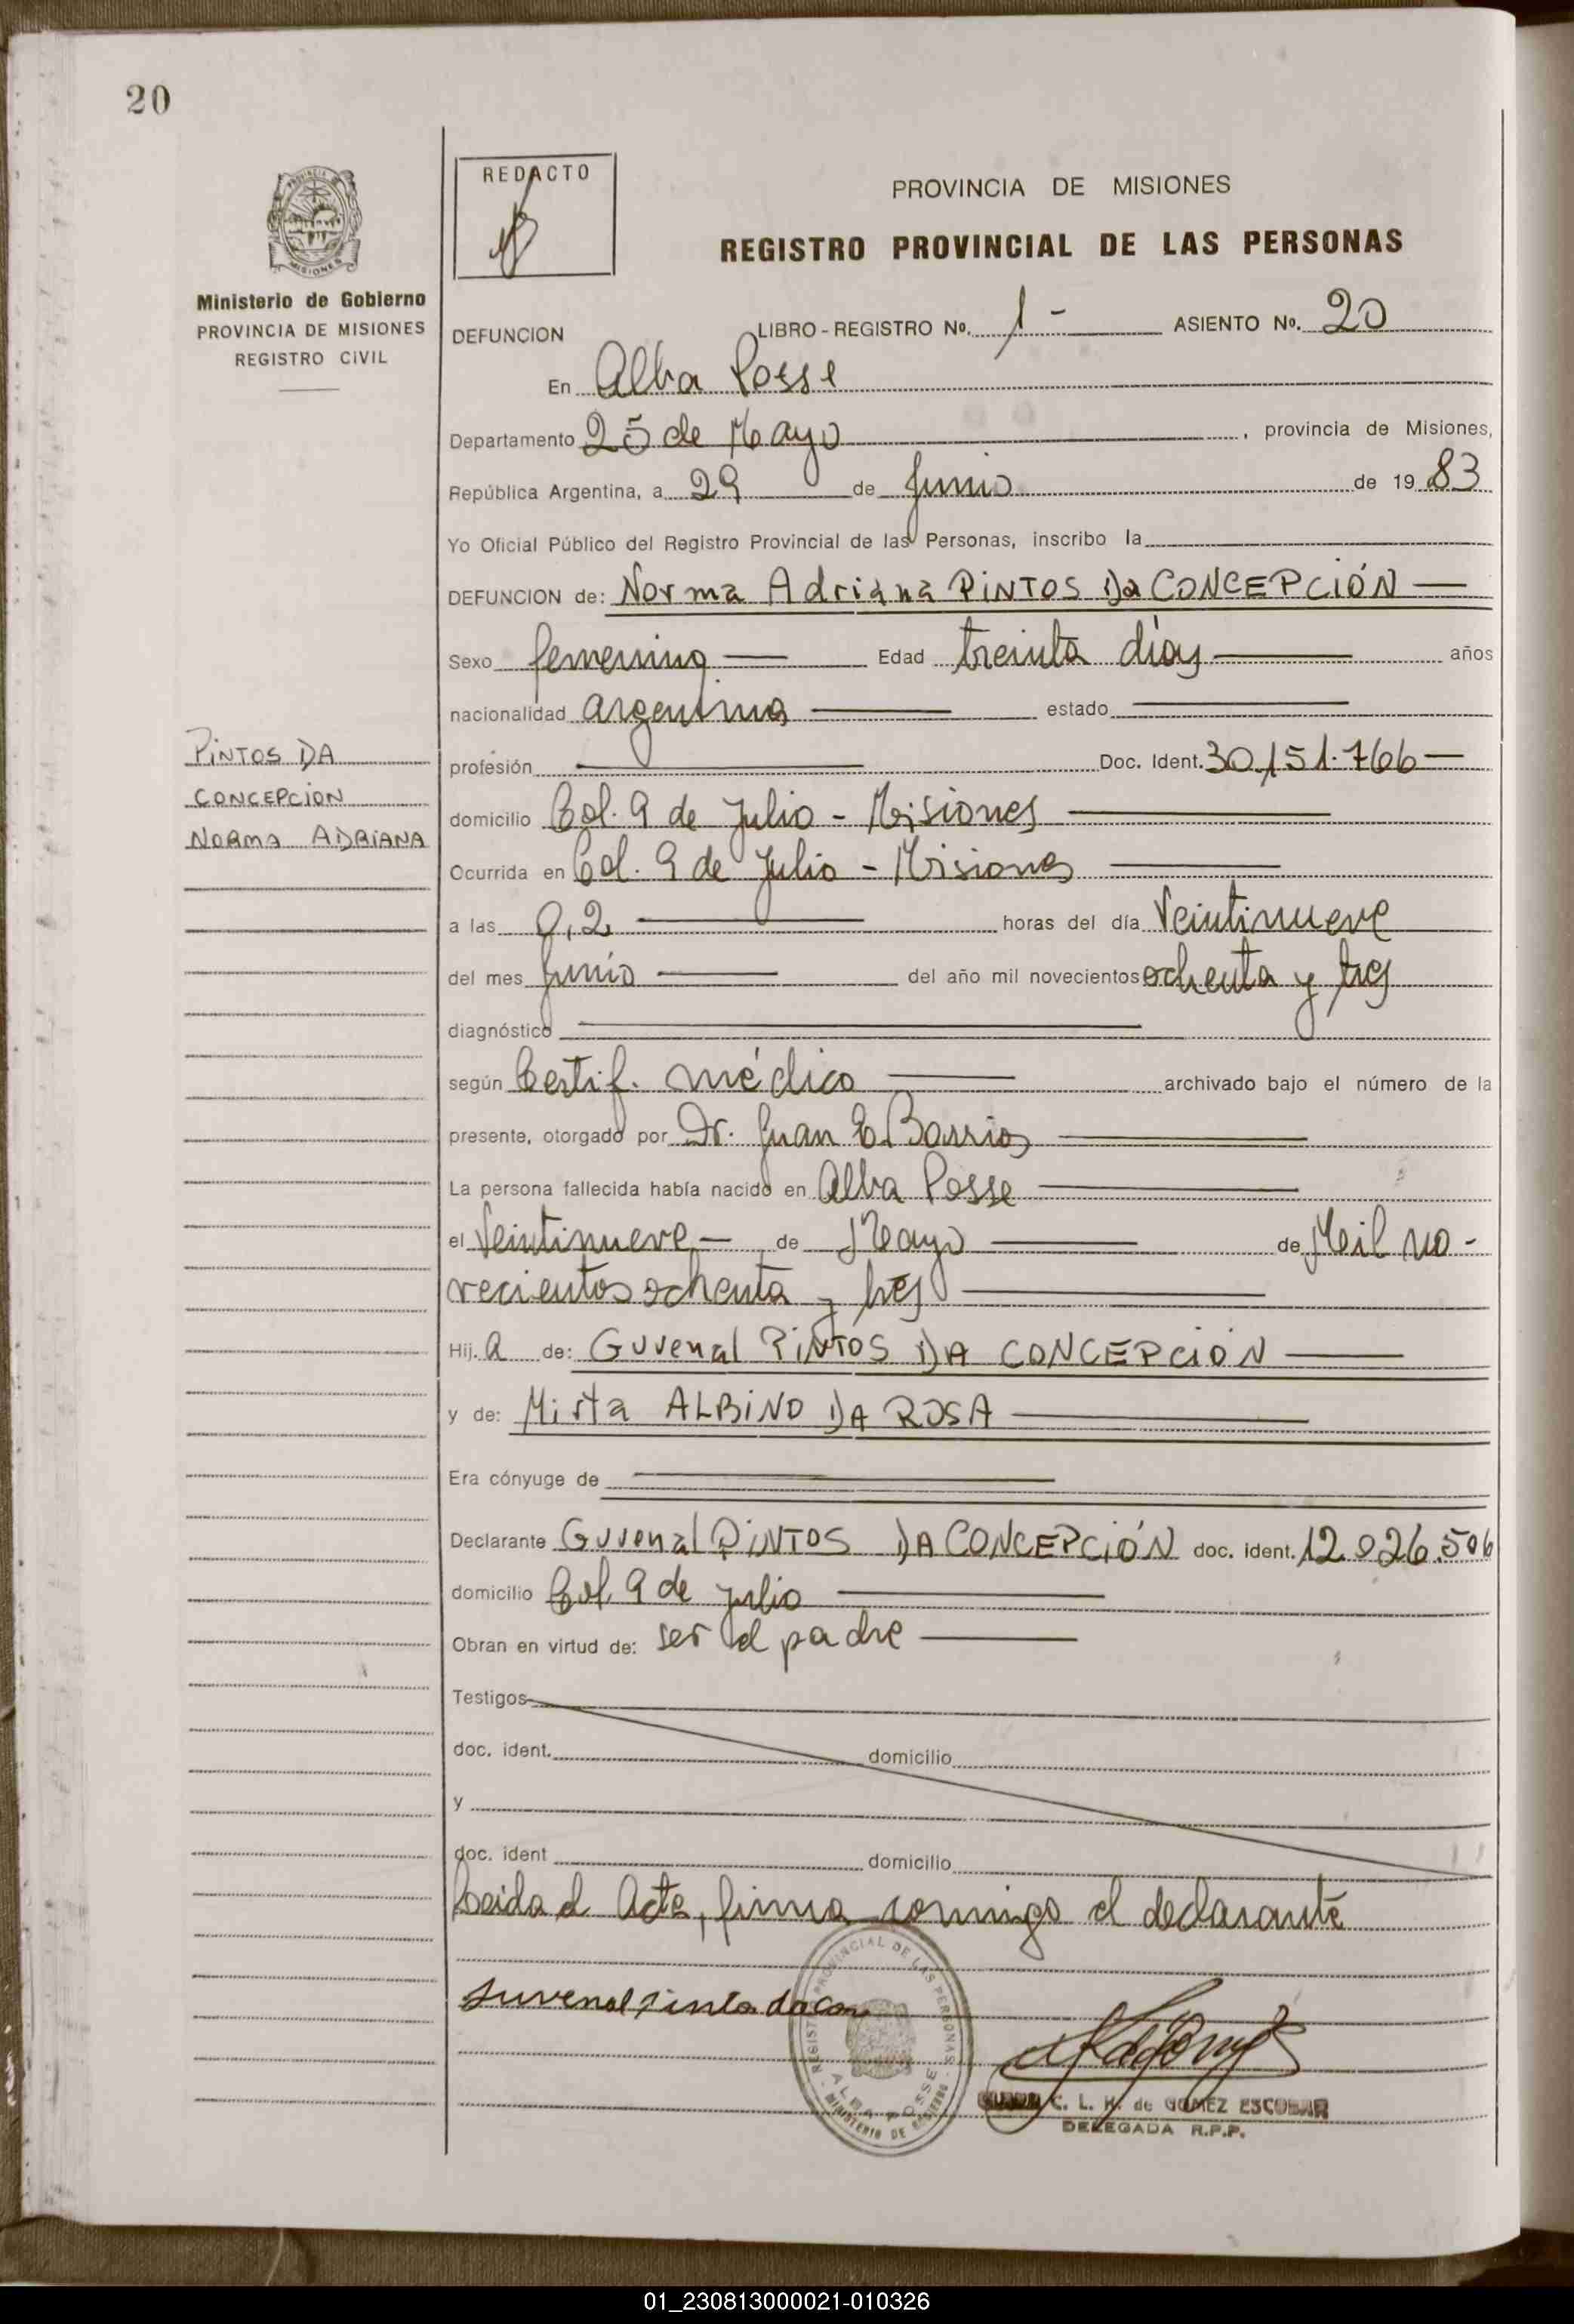 20
REDACTO
PROVINCIA DE MISIONES
REGISTRO PROVINCIAL DE LAS PERSONAS
Ministerio de Gobierno
PROVINCIA DE MISIONES
REGISTRO CIVIL
DEFUNCION LIBRO - REGISTRO No. 1 - ASIENTO No. 20
En Alba Posse
Departamento 25 de Mayo, provincia de Misiones,
República Argentina, a 29 de Junio de 1983
Yo Oficial Público del Registro Provincial de las Personas, inscribo la
DEFUNCION de: Norma Adriana PINTOS Da CONCEPCIÓN
Sexo femenino Edad treinta días años
nacionalidad argentina estado
PINTOS DA
CONCEPCION
NORMA ADRIANA
profesión Doc. Ident. 30.151.766
domicilio Col. 9 de Julio - Misiones
Ocurrida en Col. 9 de Julio - Misiones
a las 0,2 horas del día Veintinueve
del mes Junio del año mil novecientos ochenta y tres
diagnóstico
según Certif. médico archivado bajo el número de la
presente, otorgado por Dr. Juan E. Barrios
La persona fallecida había nacido en Alba Posse
el Veintinueve de Mayo de Mil no-
vecientos ochenta y tres
Hij.a de: Guvenal PINTOS DA CONCEPCIÓN
y de: Mirta ALBINO DA ROSA
Era cónyuge de
Declarante Guvenal PINTOS DA CONCEPCIÓN doc. ident. 12.026.506
domicilio Col. 9 de Julio
Obran en virtud de: ser el padre
Testigos
doc. ident. domicilio
y
doc. ident domicilio
Leida el Acta, firma conmigo el declarante
REGISTRO PROVINCIAL DE LAS PERSONAS
ALBA POSSE
MINISTERIO DE GOBIERNO
Juvenal Pinto da Con
C. L. H. de GOMEZ ESCOBAR
DELEGADA R.P.P.
01_230813000021-010326